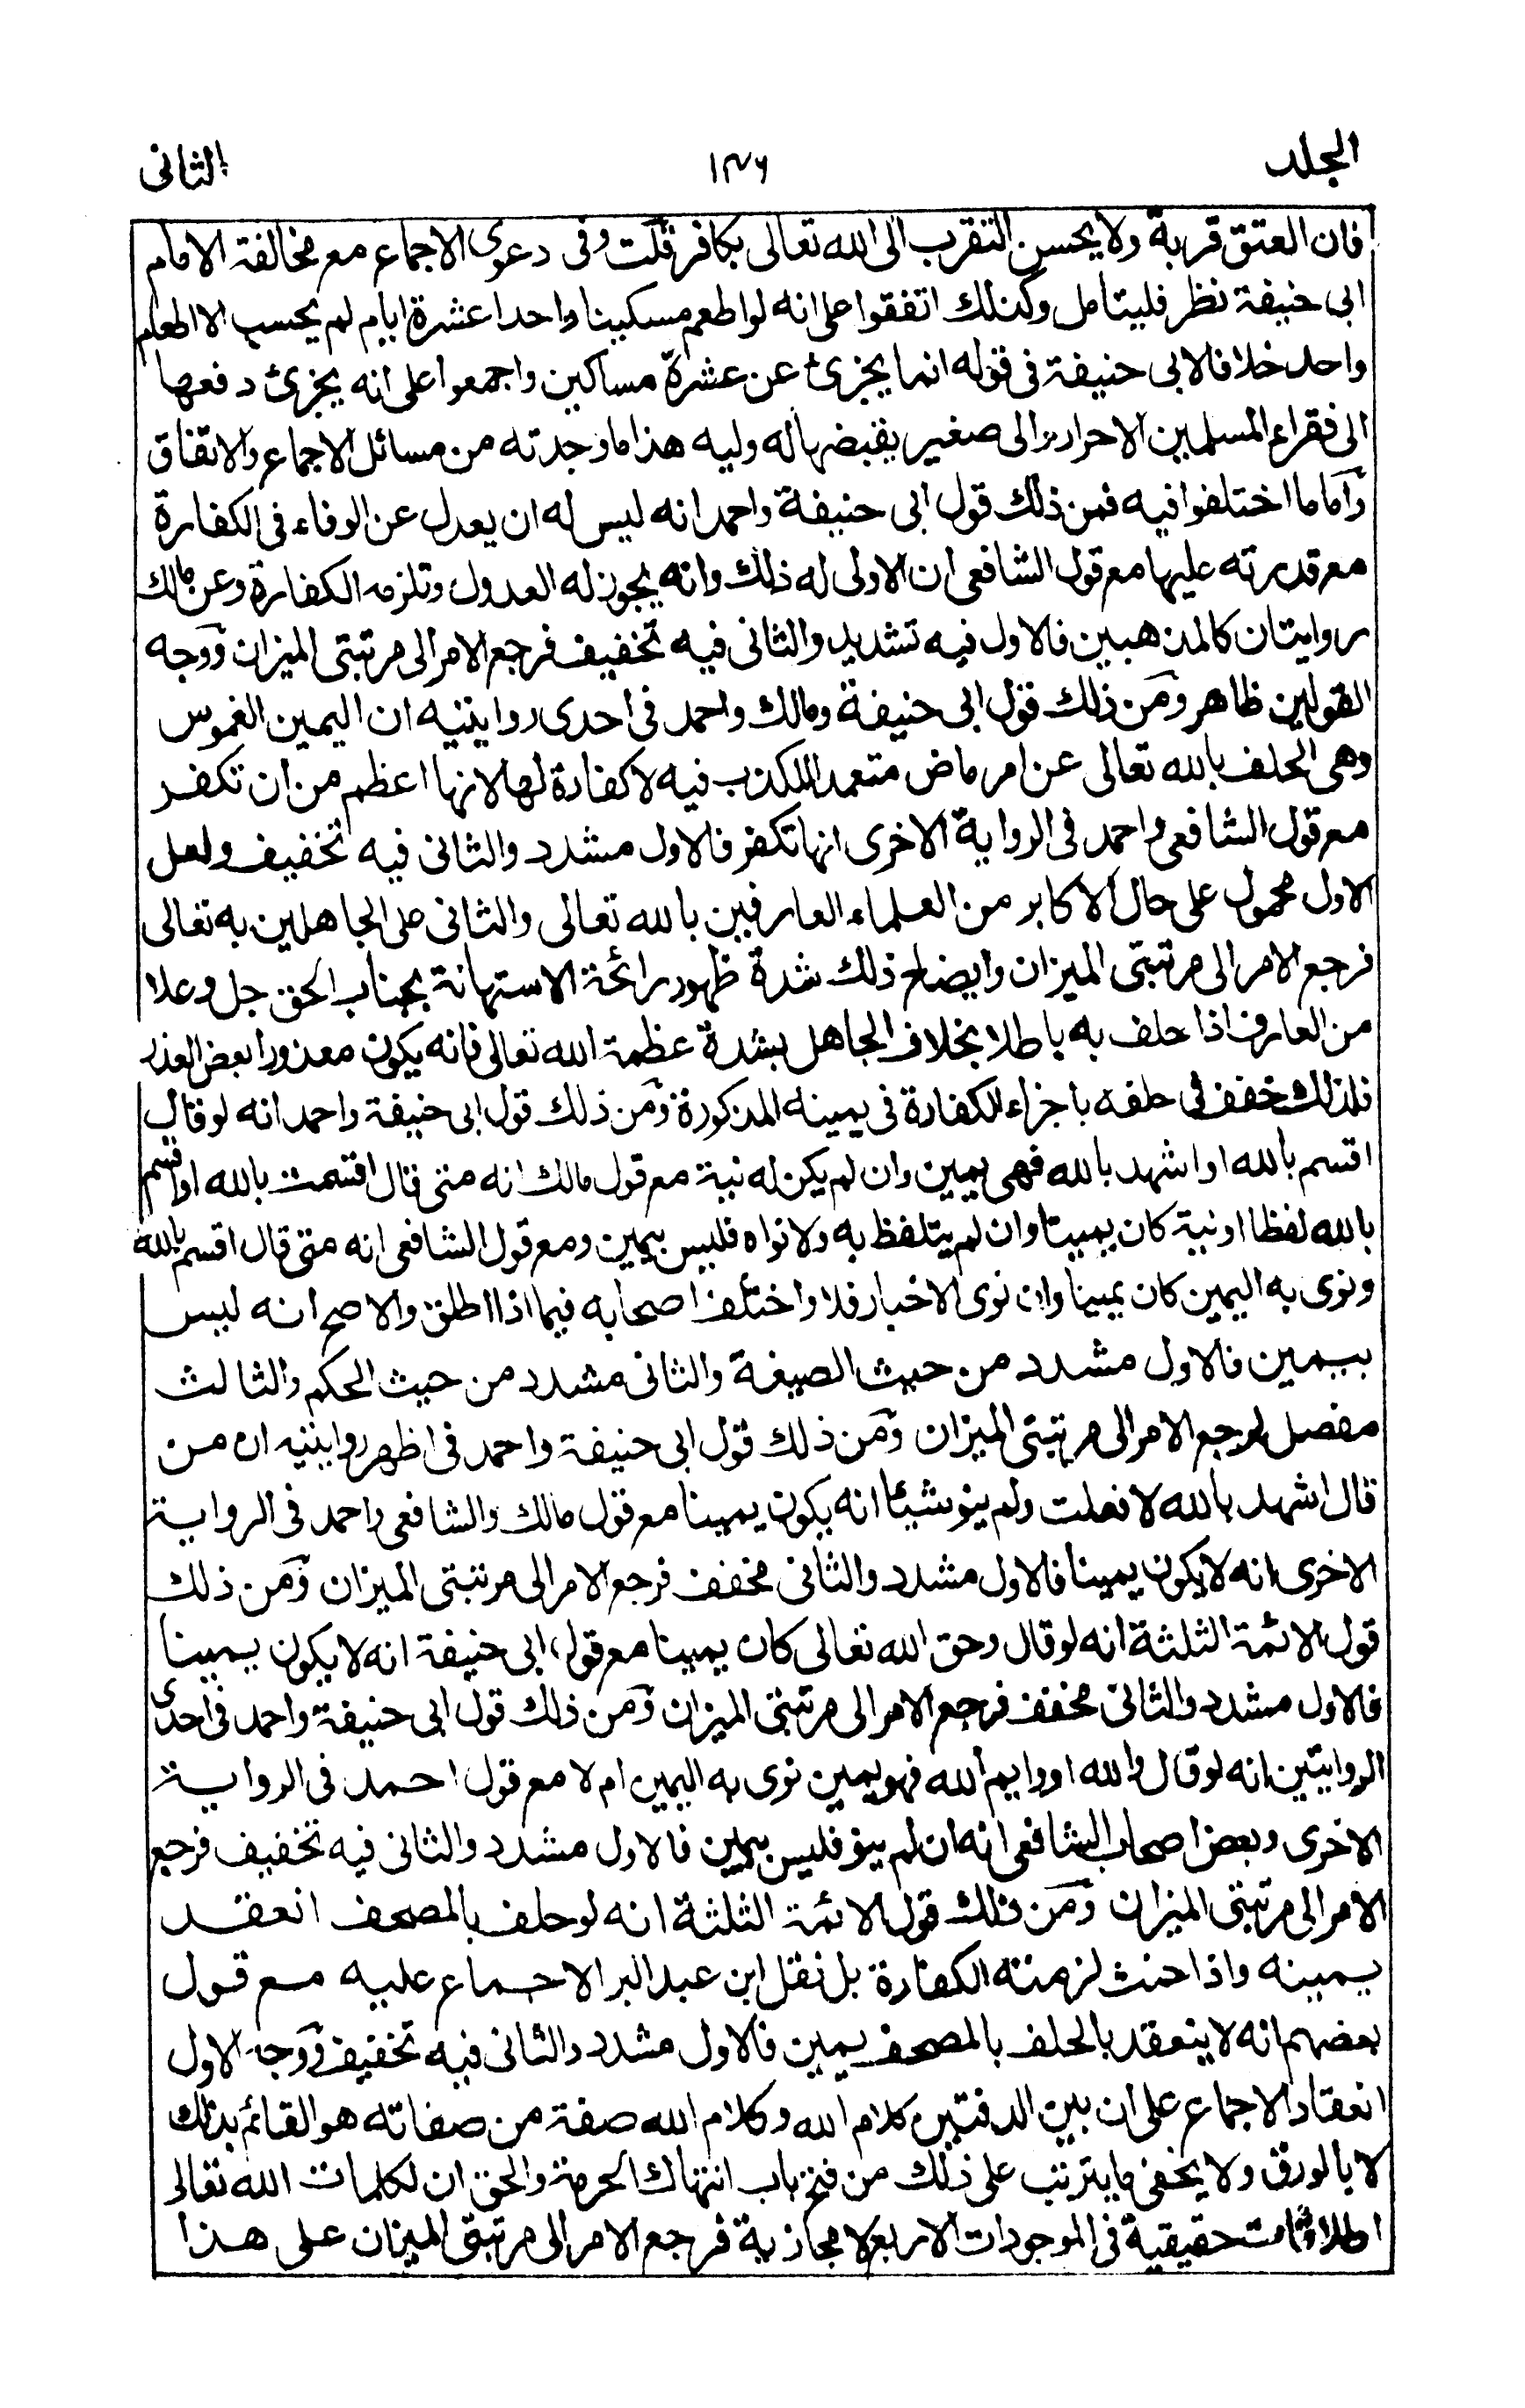 الجلد
١٣٦
الثانى
فان العتق قربة ولا يحسن التقرب الى الله تعالى بكافر قلت وفى دعوى الاجماع مع مخالفة الامام
ابى حنيفة نظر فليتأمل وكذلك اتفقوا على انه لو اطعم مسكينا واحدا عشرة ايام لم يحسب الا اطعام
واحد خلافا لابى حنيفة فى قوله انما يجزئ عن عشرة مساكين واجمعوا على انه يجزئ دفعها
الى فقراء المسلمين الاحرار والى صغير يقبضها له وليه هذا ما وجدته من مسائل الاجماع والاتفاق
وآما ما اختلفوا فيه فمن ذلك قول ابى حنيفة واحمد انه ليس له ان يعدل عن الوفاء فى الكفارة
مع قدرته عليها مع قول الشافعى ان الاولى له ذلك وانه يجوز له العدول وتلزمه الكفارة وعن مالك
روايتان كالمذهبين فالاول فيه تشديد والثانى فيه تخفيف فرجع الامر الى مرتبتى الميزان ووجه
القولين ظاهر ومن ذلك قول ابى حنيفة ومالك واحمد فى احدى روايتيه ان اليمين الغموس
وهى الحلف بالله تعالى عن امر ماض متعمد الكذب فيه لا كفارة لها لانها اعظم من ان تكفر
مع قول الشافعى واحمد فى الرواية الاخرى انها تكفر فالاول مشدد والثانى فيه تخفيف ولعل
الاول محمول على حال الاكابر من العلماء العارفين بالله تعالى والثانى على الجاهلين به تعالى
فرجع الامر الى مرتبتى الميزان وايضاح ذلك شدة ظهور رائحة الاستهانة بجناب الحق جل وعلا
من العارف اذا حلف به باطلا بخلاف الجاهل بشدة عظمة الله تعالى فانه يكون معذورا بعض العذر
فلذلك خفف فى حلفه باجزاء الكفارة فى يمينه المذكورة ومن ذلك قول ابى حنيفة واحمد انه لو قال
اقسم بالله او اشهد بالله فهى يمين وان لم يكن له نية مع قول مالك انه متى قال اقسمت بالله او اقسم
بالله لفظا او نية كان يمينا وان لم يتلفظ به ولا نواه فليس بيمين ومع قول الشافعى انه متى قال اقسم بالله
ونوى به اليمين كان يمينا وان نوى الاخبار فلا واختلف اصحابه فيما اذا اطلق والاصح انه ليس
بيمين فالاول مشدد من حيث الصيغة والثانى مشدد من حيث الحكم والثالث
مفصل فرجع الامر الى مرتبتى الميزان ومن ذلك قول ابى حنيفة واحمد فى اظهر روايتيه ان من
قال اشهد بالله لا فعلت ولم ينو شيئا انه يكون يمينا مع قول مالك والشافعى واحمد فى الرواية
الاخرى انه لا يكون يمينا فالاول مشدد والثانى مخفف فرجع الامر الى مرتبتى الميزان ومن ذلك
قول الائمة الثلثة انه لو قال وحق الله تعالى كان يمينا مع قول ابى حنيفة انه لا يكون يمينا
فالاول مشدد والثانى مخفف فرجع الامر الى مرتبتى الميزان ومن ذلك قول ابى حنيفة واحمد فى احدى
الروايتين انه لو قال والله او وايم الله فهو يمين نوى به اليمين ام لا مع قول احمد فى الرواية
الاخرى وبعض اصحاب الشافعى انه ان لم ينو فليس بيمين فالاول مشدد والثانى فيه تخفيف فرجع
الامر الى مرتبتى الميزان ومن ذلك قول الائمة الثلثة انه لو حلف بالمصحف انعقد
يمينه واذا حنث لزمته الكفارة بل نقل ابن عبد البر الاجماع عليه مع قول
بعضهم انه لا ينعقد بالحلف بالمصحف يمين فالاول مشدد والثانى فيه تخفيف ووجه الاول
انعقاد الاجماع على ان بين الدفتين كلام الله وكلام الله صفة من صفاته هو القائم بذلك
لا بالورق ولا يخفى ما يترتب على ذلك من فتح باب انتهاك الحرمة والحق ان لكلمات الله تعالى
اطلاقات حقيقية فى الموجودات الاربع لا مجازية فرجع الامر الى مرتبتى الميزان على هذا